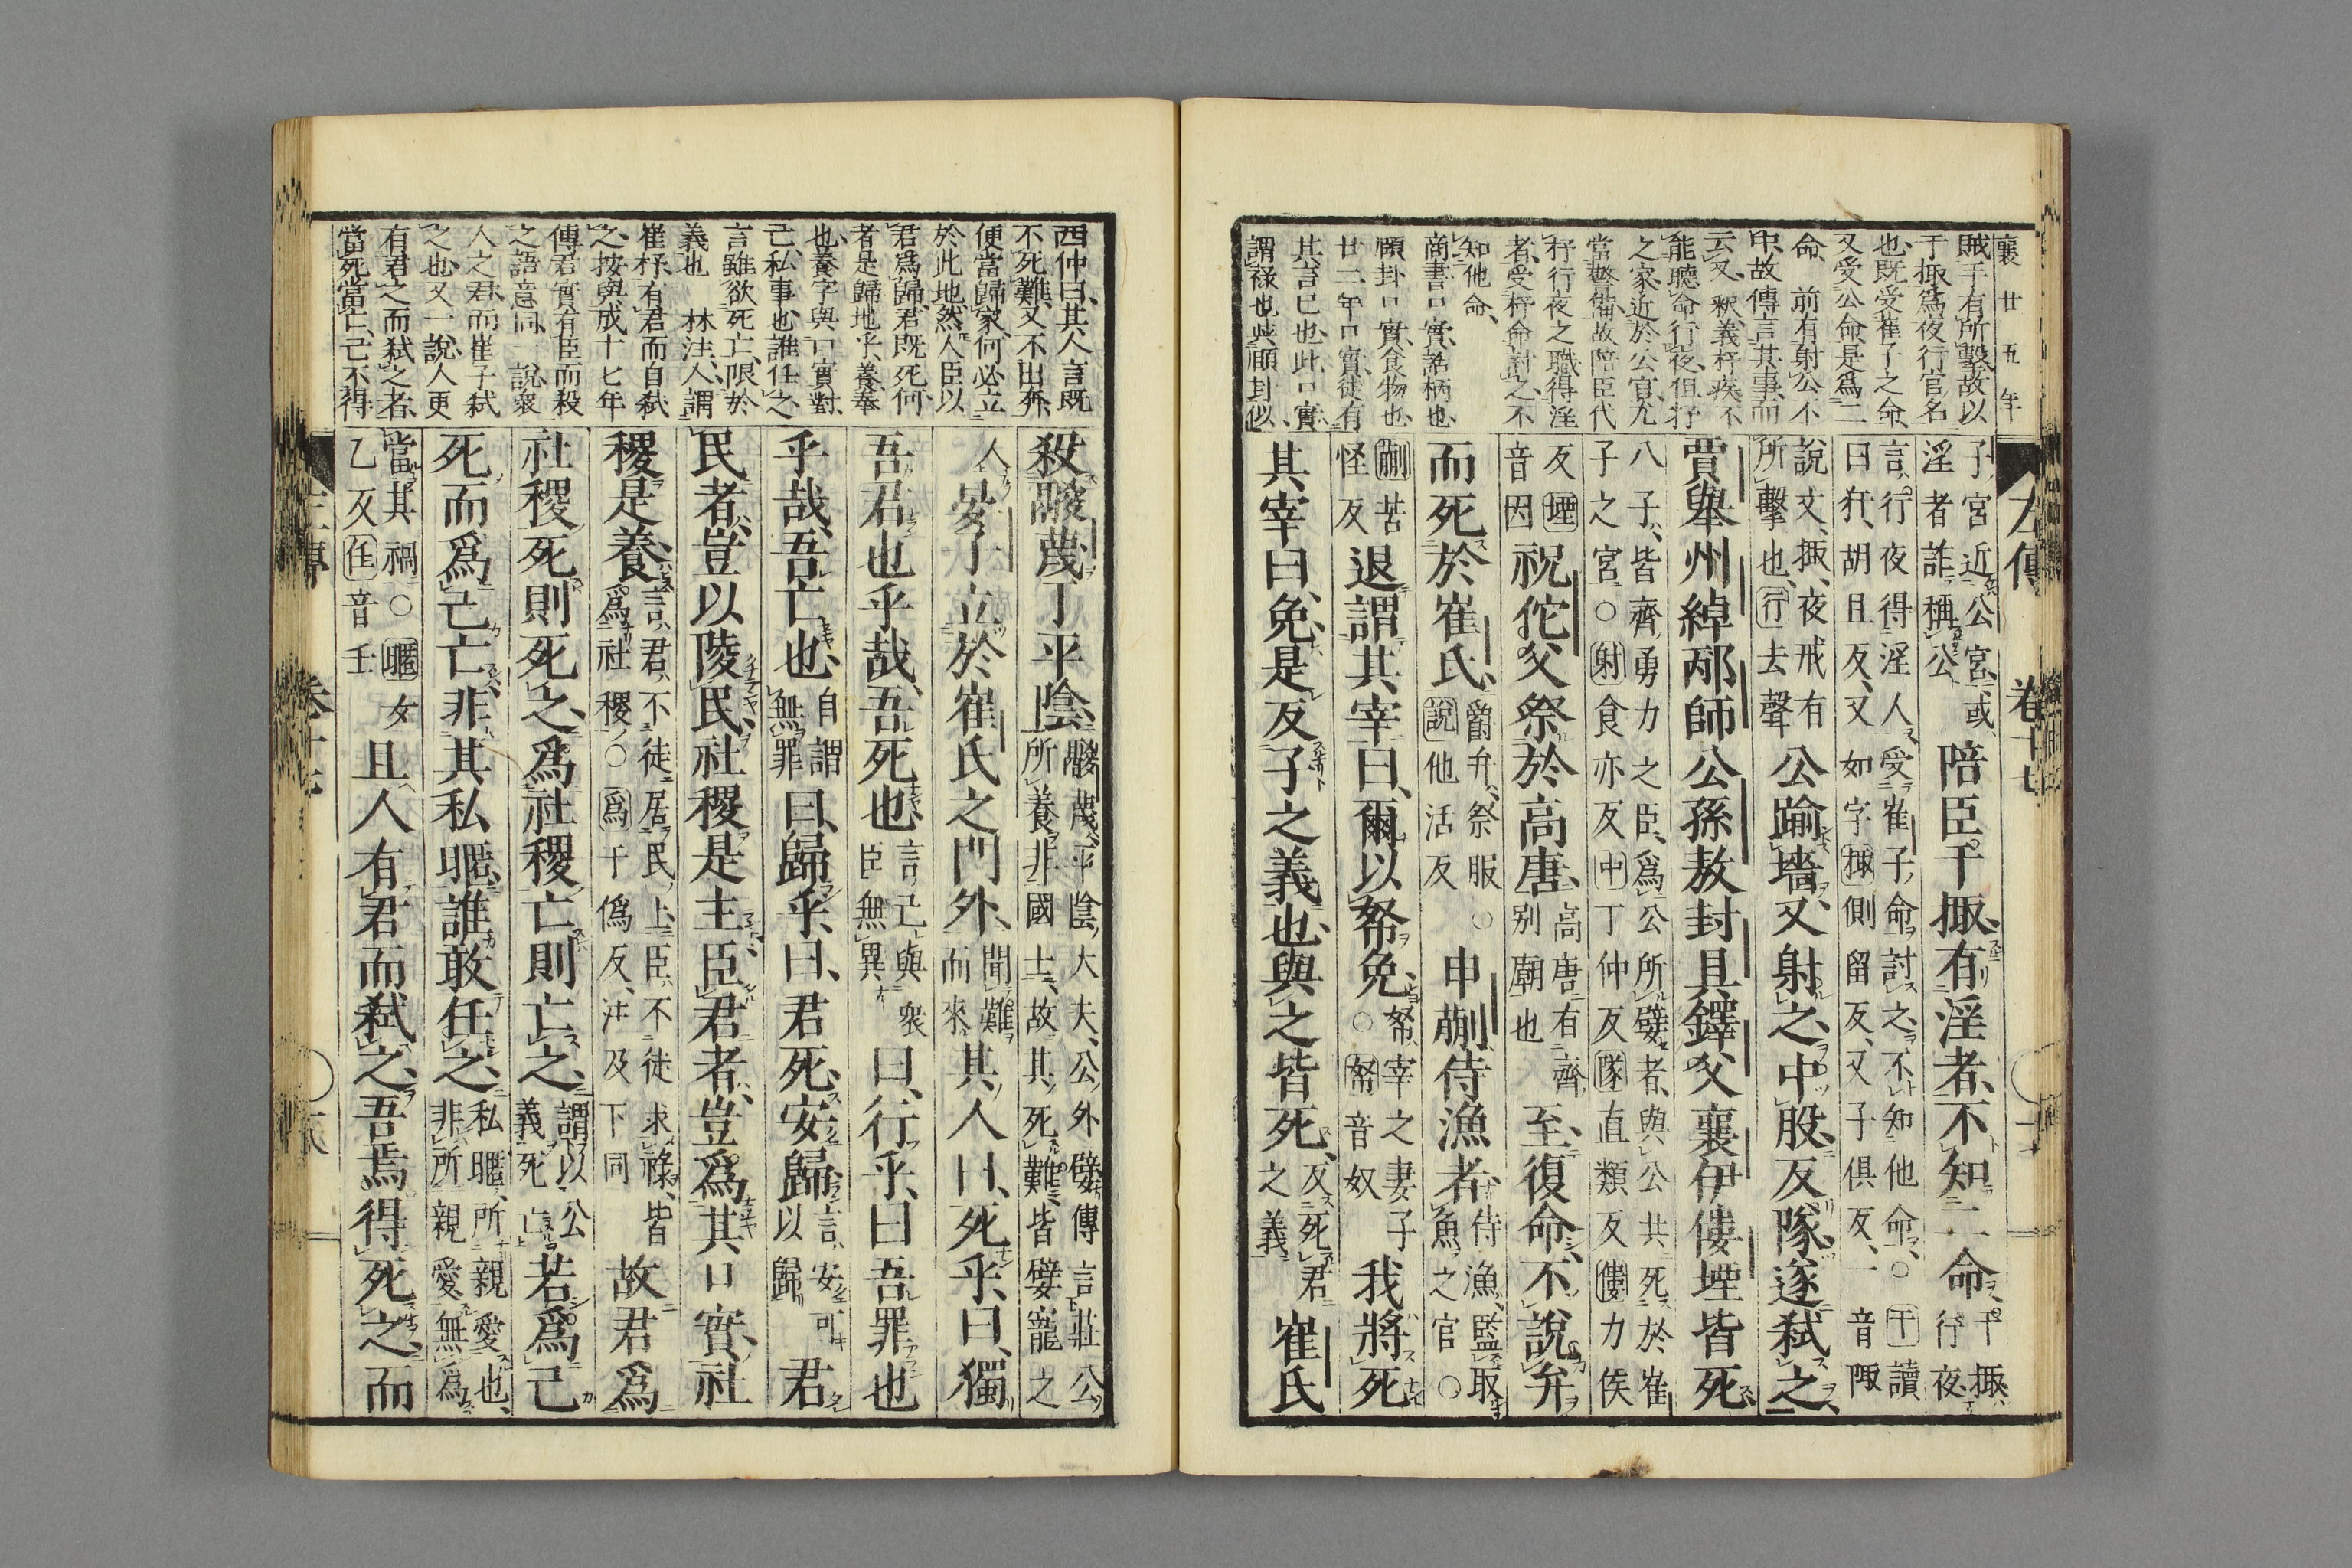 襄 廿五年
賊手有所擊故以
于掫爲夜行官名
也既受崔子之命
又受公命是爲二
命 前有射公不
中故傳言其事而
云又 釈義杼疾不
能聽命行夜但杼
之家近於公宮尤
當警備故陪臣代
杼行夜之職得淫
者受杼命討之不
知他命
商書口實話柄也
頤卦口實食物也
廿二年口實徒有
其言已也此口實
謂祿也與頤卦似
左傳 卷十七
子宮近公宮或
淫者詐稱公
陪臣干掫有淫者不知二命
干掫
行夜
言行夜得淫人受崔子命討之不知他命○干讀
曰犴胡旦反又如字掫側留反又子俱反一音陬
說文掫夜戒有
所擊也行去聲
公踰墻又射之中股反隊遂弑之
賈舉州綽邴師公孫敖封具鐸父襄伊僂堙皆死
八子皆齊勇力之臣爲公所嬖者與公共死於崔
子之宮○射食亦反中丁仲反隊直類反僂力侯
反堙
音因
祝佗父祭於高唐
高唐有齊
別廟也
至復命不說弁
而死於崔氏
爵弁祭服○
說他活反
申蒯侍漁者
侍漁監取
魚之官○
蒯苦
怪反
退謂其宰曰爾以帑免
帑宰之妻子
○帑音奴
我將死
其宰曰免是反子之義也與之皆死
反死君
之義
崔氏
西仲曰其人言既
不死難又不出奔
便當歸家何必立
於此地然人臣以
君爲歸君既死何
者是歸地乎養奉
也養字與口實對
己私事也誰任之
言雖欲死亡限於
義也 林注人謂
崔杼有君而自弑
之按與成十七年
傳君實有臣而殺
之語意同一說衆
人之君而崔子弑
之也又一說人更
有君之而弑之者
當死當亡己不得
殺鬷蔑于平陰
鬷蔑平陰大夫公外嬖傳言莊公
所養非國士故其死難皆嬖寵之
人
晏子立於崔氏之門外
聞難
而來
其人曰死乎曰獨
吾君也乎哉吾死也
言己與衆
臣無異
曰行乎曰吾罪也
乎哉吾亡也
自謂
無罪
曰歸乎曰君死安歸
言安可
以歸
君
民者豈以陵民社稷是主臣君者豈爲其口實社
稷是養
言君不徒居民上臣不徒求祿皆
爲社稷○爲于僞反注及下同
故君爲
社稷死則死之爲社稷亡則亡之
謂以公
義死亡
若爲己
死而爲己亡非其私暱誰敢任之
私暱所親愛也
非所親愛無爲
當其禍○暱女
乙反任音壬
且人有君而弑之吾焉得死之而